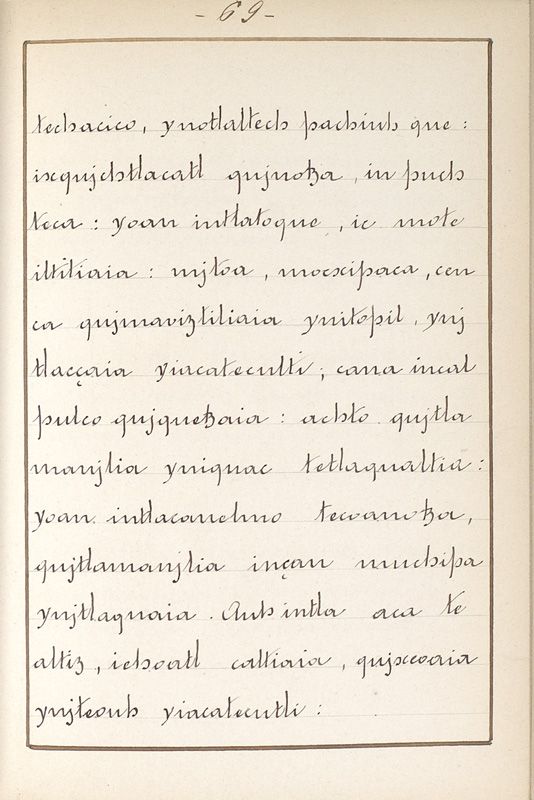 - 69 -
techacico, ynotlaltech pachiuh que:
ixqujchtlacatl qujnotza, in puch
teca: yoan intlatoque, ic mote
iltitiaia: mjtoa, mocxipaca, cen
ca qujmaviztiliaia ynitopil, ynj
tlacçaia yiacatecutli; cana incal
pulco qujquetzaia: achto qujtla
manjlia yniquac tetlaqualtia:
yoan. intlacanelmo tecoanotza,
qujtlamanjlia inçan muchipa
ynjtlaquaia. Auh intla aca te
altiz, ichoatl caltiaia, qujxcoaia
ynjteouh yiacatecutli: